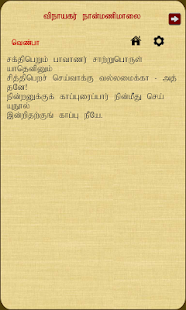 விநாயகர் நான்மணிமாலை
வெண்பா
சக்திபெறும் பாவாணர் சாற்றுபொருள்
யாதெனினும்
சித்திபெறச் செய்வாக்கு வல்லமைக்கா - அத்
தனே!
நின்றனுக்குக் காப்புரைப்பார் நின்மீது செய்
யுநூல்
இன்றிதற்குங் காப்பு நீயே.